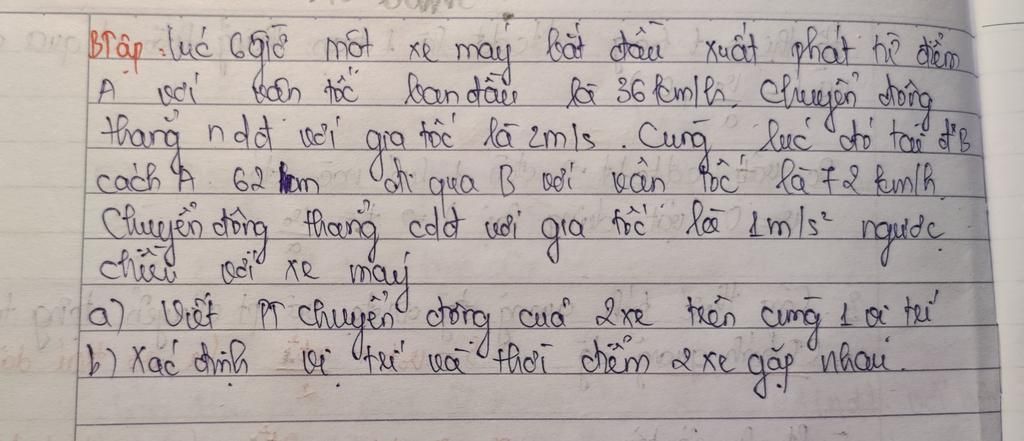 BTập: lúc 6 giờ một xe máy bắt đầu xuất phát từ điểm
A với vận tốc ban đầu là 36 km/h. Chuyển động
thẳng ndđ với gia tốc là 2m/s. Cùng lúc đó tại đ' B
cách A 62 km đi qua B với vận tốc là 72 km/h
Chuyển động thẳng cdđ với gia tốc là 1m/s² ngược
chiều với xe máy
a) Viết PT chuyển động của 2 xe trên cùng 1 vị trí
b) Xác định vị trí và thời điểm 2 xe gặp nhau.